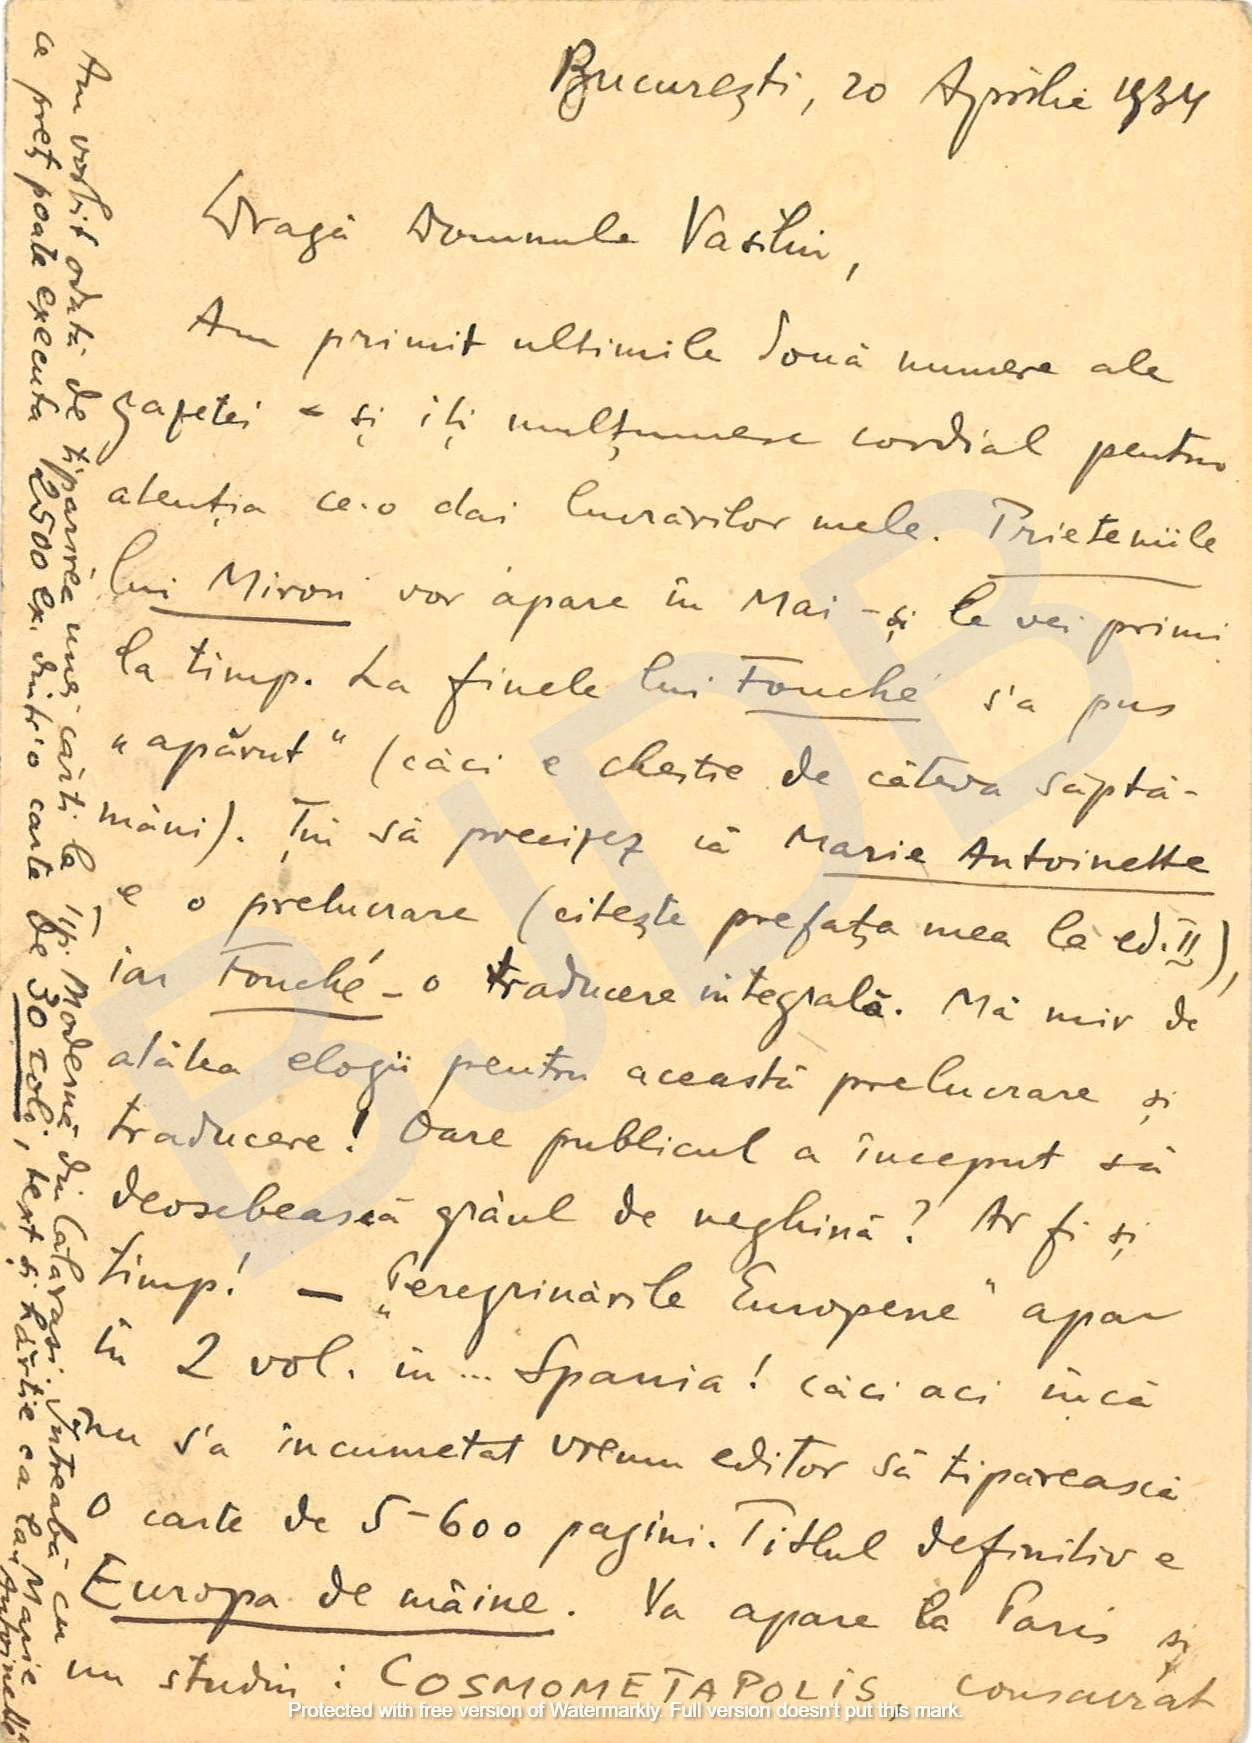 București, 20 Aprilie 1934
Dragă Domnule Vasiliu,
Am primit ultimile două numere ale
gazetei - și îți mulțumesc cordial pentru
atenția ce-o dai lucrărilor mele. Prieteniile
lui Miron vor apare în Mai - și le vei primi
la timp. La finele lui Fouché s'a pus
"apărut" (căci e chestie de câteva săptă-
mâni). Țin să precizez că Marie Antoinette
e o prelucrare (citește prefața mea la ed. II),
iar Fouché - o traducere integrală. Mă mir de
atâtea elogii pentru această prelucrare și
traducere! Oare publicul a început să
deosebească grâul de neghină? Ar fi și
timp! — „Peregrinările Europene" apar
în 2 vol. in... Spania! căci aci încă
nu s'a încumetat vreun editor să tipărească
o carte de 5-600 pagini. Titlul definitiv e
Europa de mâine. Va apare la Paris și
un studiu: COSMOMETAPOLIS, consacrat
Am vorbit odată de tipărirea unei cărți la Tip. Modernă din Calarasi. Întreabă cu
ce preț poate executa 2500 ex. dintr'o carte de 30 coli, text și hârtie ca la „Marie
Antoinette"
BJDB
Protected with free version of Watermarkly. Full version doesn't put this mark.